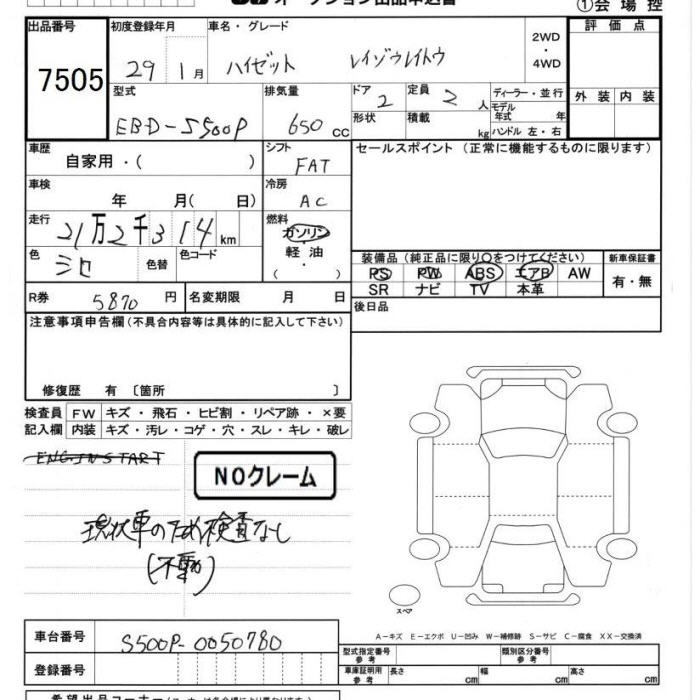 オークション出品申込書
①会場控
出品番号 初度登録年月 車名・グレード 2WD 評価点
7505 29 1月 ハイゼット レイゾウレイトウ ・4WD
型式 排気量 ドア 定員 ディーラー・並行 外装 内装
EBD-S500P 650cc 2 2人 モデル年式 年
形状 積載 kg ハンドル 左・右
車歴 シフト セールスポイント(正常に機能するものに限ります)
自家用・( ) FAT
車検 冷房
年 月( 日) AC
走行 燃料
21万2千314km ガソリン
色 色替 色コード ・軽油・
シロ ( )
装備品(純正品に限り○をつけてください) 新車保証書
PS PW ABS エアB AW 有・無
SR ナビ TV 本革
R券 5870円 名変期限 月 日 後日品
注意事項申告欄(不具合内容等は具体的に記入して下さい)
修復歴 有 〔箇所 〕
検査員 FW キズ・飛石・ヒビ割・リペア跡・×要
記入欄 内装 キズ・汚レ・コゲ・穴・スレ・キレ・破レ
NOクレーム
現状車のため検査なし
(不動)
スペア
A-キズ E-エクボ U-凹み W-補修跡 S-サビ C-腐食 XX-交換済
車台番号 S500P-0050780 型式指定番号 参考 類別区分番号 参考
登録番号 車庫証明用 参考 長さ cm 幅 cm 高さ cm
希望出品コーナー